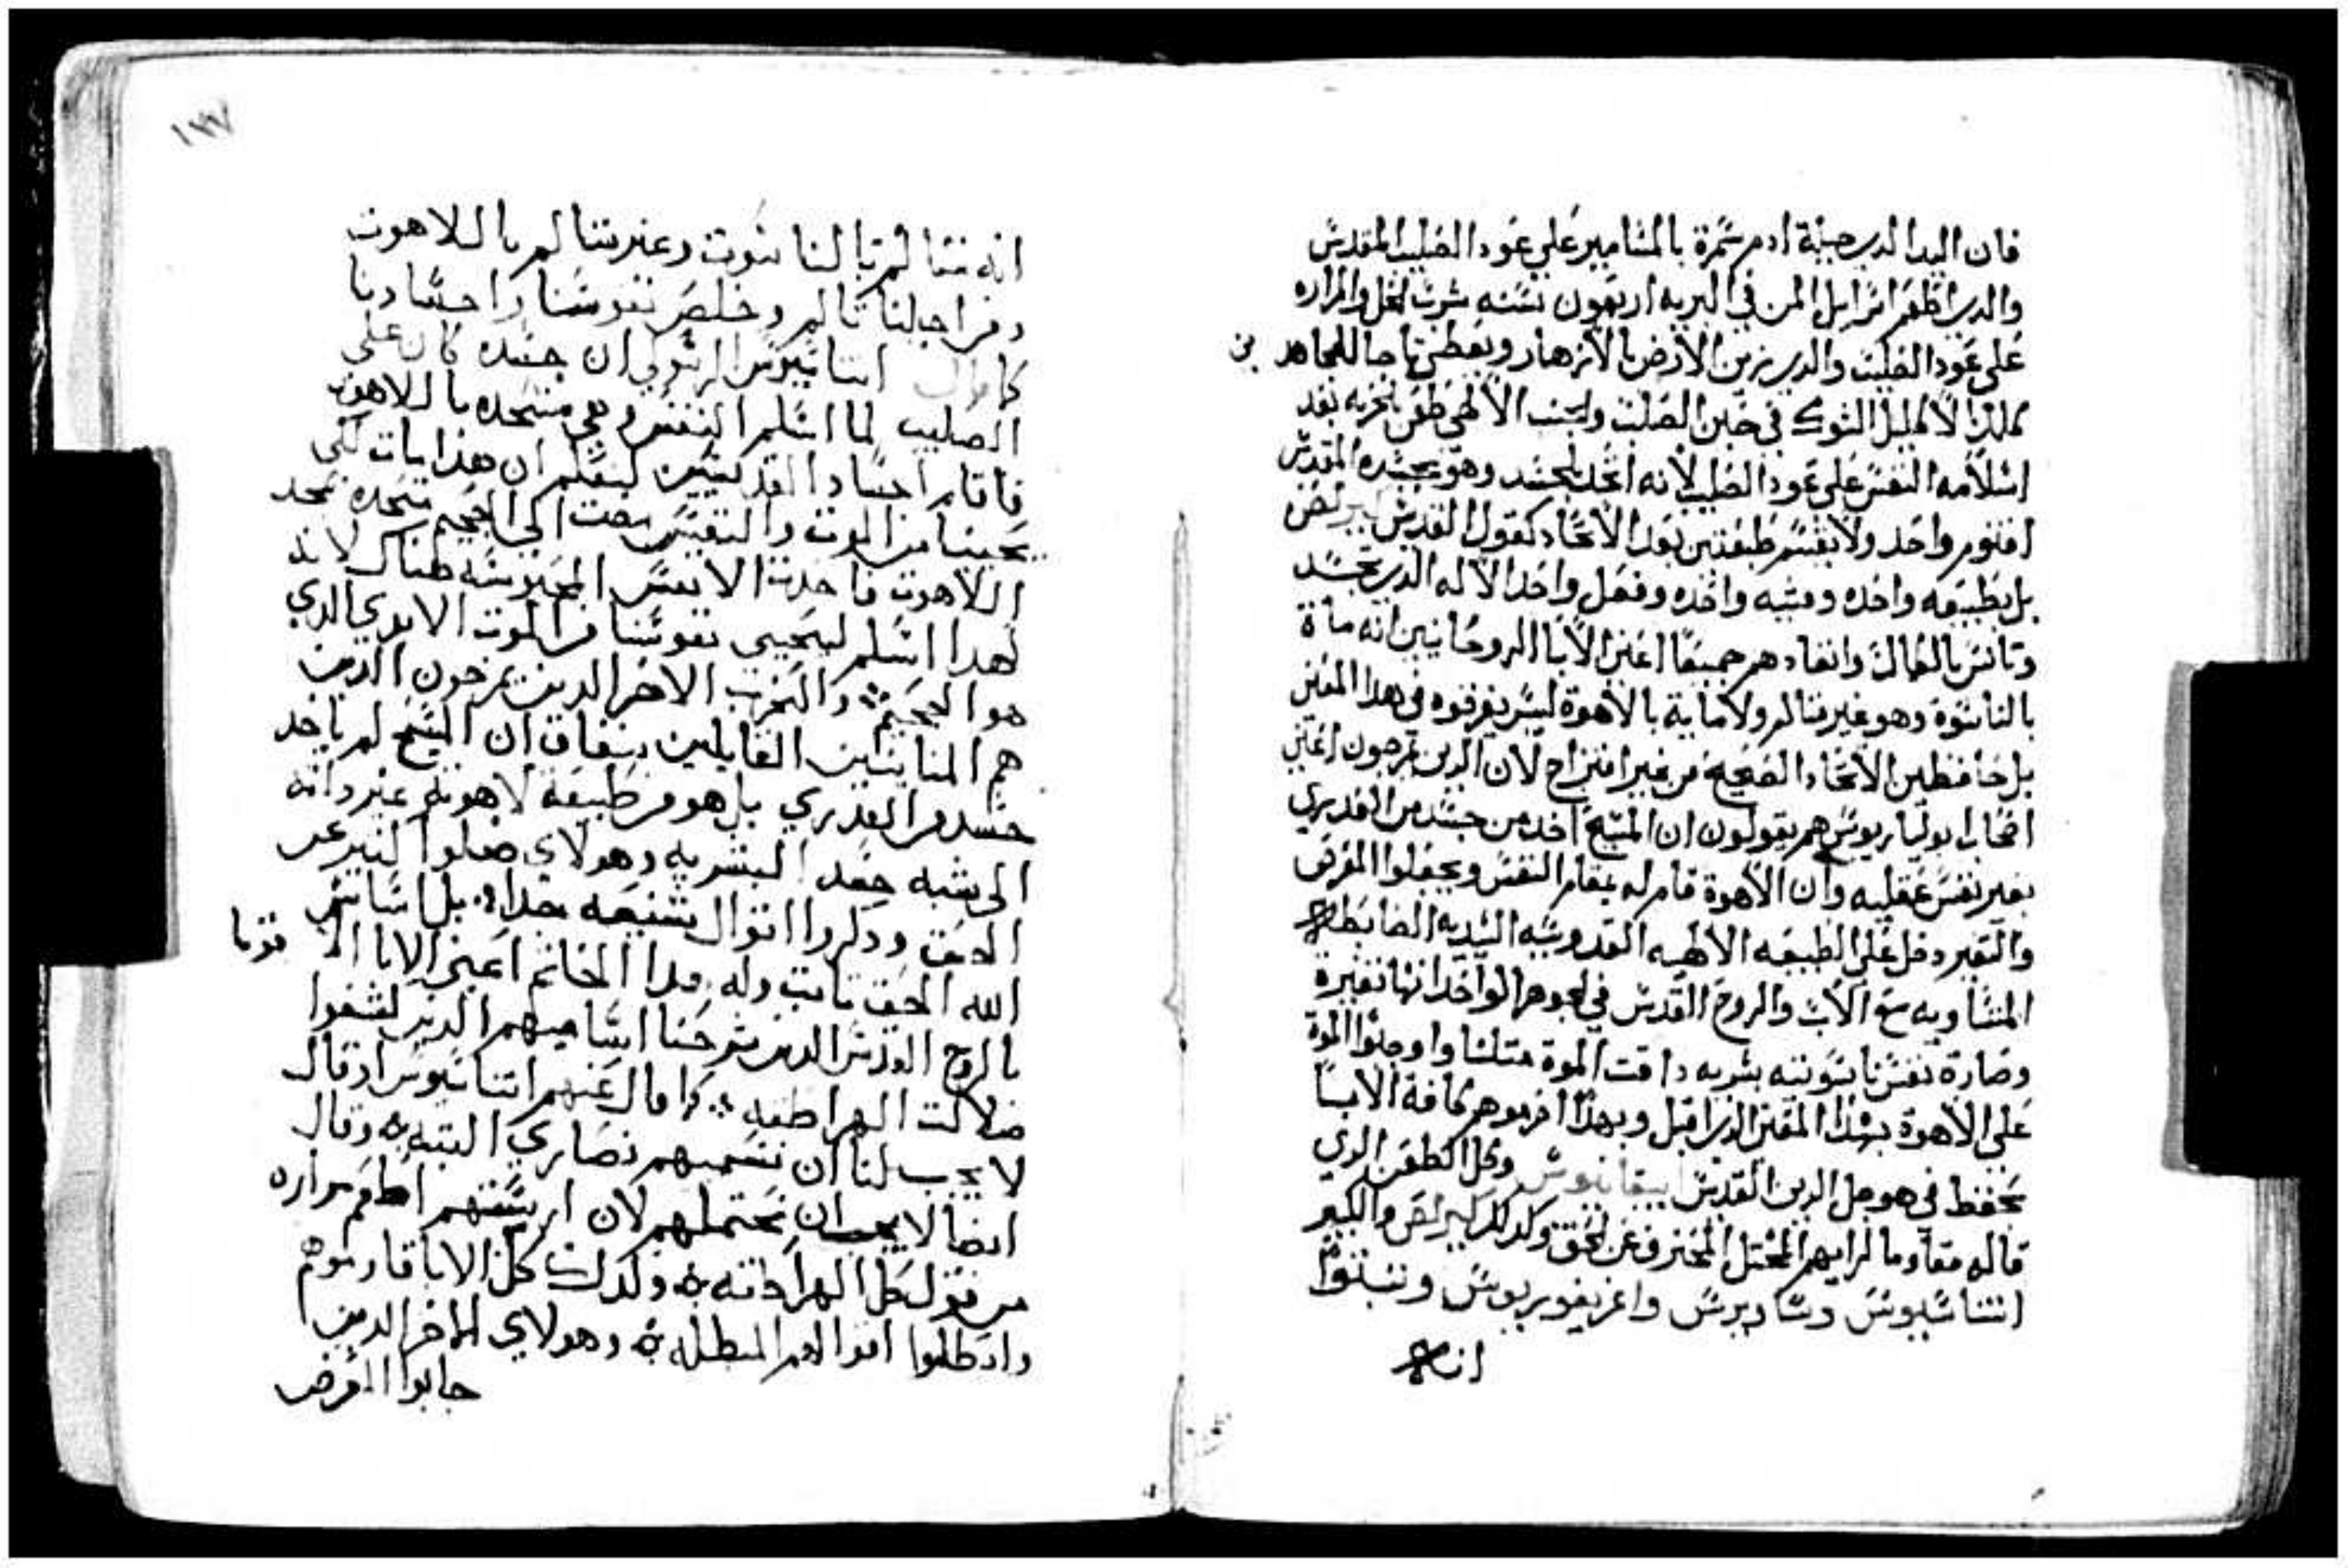 فان اليد الدي جبلة ادم سمرة بالمسامير على عود الصليب المقدس
والدي اطعم اسراييل المن في البريه اربعون سنه شرب الخل والمراره
على عود الصليب والدي زين الارض بالازهار ويعطي تاجا للمجاهدين
كلل اكليل الشوك في حين الصلبت والجنب الالهي طعن بالحربه بعد
اسلامه النفس على عود الصليب لانه اتحد بالجسد وهو بجسده المقدس
اقنوم واحد ولا يقسم طبعتين بعد الاتحاد كقول القديس كيرلص
بل بطبيعه واحده ومشيه واحده وفعل واحد الاله الدي تجسد
وتانس بالكمال وانفادهم جميعا اعني الابا الروحانيين انه ماة
بالناسوة وهو غير متالم ولا ماية بالاهوة ليس يفرقوه في هدا المعني
بل حافظين الاتحاد الصحيح من غير امتزاج لان الدين يمزجون اعني
اصحاب بوليناريوس هم يقولون ان المسيح اخد من جسد من القديري
بغير نفس عقليه وان الاهوة قام له بمقام النفس ويجعلوا المرض
والتغير دخل على الطبيعه الالهيه القدوسيه السيديه الضابطه
المتساويه مع الاب والروح القدس في الجوهر الواحد انها تغيرة
وصارة نفس ناسوتيه بشريه داقت الموة متلنا واوجبوا الموة
على الاهوة بهدا المعني الدي قبل وبهدا افرموهم كافة الابا
تحفظ في هو من اجل الدين القديس ابيفانيوس وكل الطعن الدي
قاله مقاوما لرايهم المختل المنحرف عن الحق وكدلك كيرلص والكبير
اتناسيوس وساويرس واغريغوريوس وتبتوا
انه
١٣٧
انه متالم بالناسوت وغير متالم بالاهوت
ومن اجلنا تالم وخلص نفوسنا واجسادنا
كما قال اتناسيوس الرسولي ان جسده كان على
الصليب لما اسلم النفس وهي متحده بالاهوت
فاقام اجساد القديسين ليعلم ان هدا مات لكي
يحيينا من الموت والنفس مضت الى الجحيم متحده بمجد
اللاهوت فاخدت الانفس المحبوسه هناك لانه
لهدا اسلم ليحيي نفوسنا من الموت الابدي الدي
هو الجحيم والحزب الاخر الدين يمزجون الدين
هم المنانيين القايلين بنفاق ان المسيح لم ياخد
جسد من العدري بل هو من طبيعة لاهوته غير دانه
الى شبه جعد البشريه وهولاي ضلوا كتير عن
الحق ودكروا اقوال شنيعه جدا بل اساس
الله الحق تابت وله هدا الخاتم اعني الابا
بالروح القدس الدين شرحنا اساميهم الدين كشفوا
ضلالت الهراطقه كما قال عنهم اتناسيوس اد قال
لا يجب لنا ان نسميهم نصاري البته وقال
ايضا لا يجب ان نحتملهم لان ارسيتهم اطعم مراره
من قول كل الهراطقه ولدلك كل الابا قاوموهم
وابطلوا اقوالهم المبطله وهولاي الاخر الدين
جابوا المرض